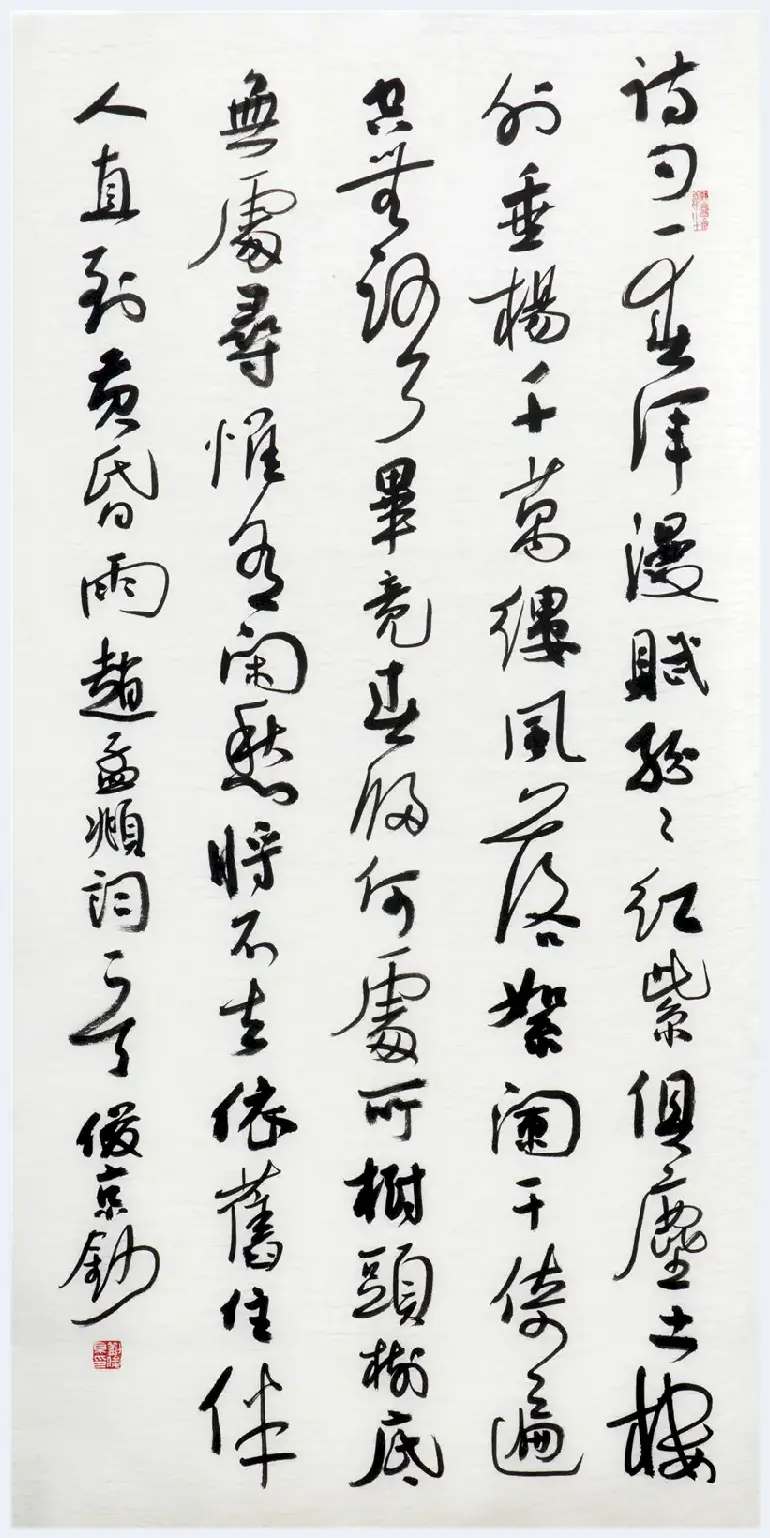 詩句一春渾漫賦紛々紅紫俱塵土樓
外垂楊千萬縷風落絮闌干倚遍
空無語畢竟春歸何處所樹頭樹底
無處尋惟有閑愁將不去依舊住伴
人直到黃昏雨趙孟頫詞一首俊京鈔